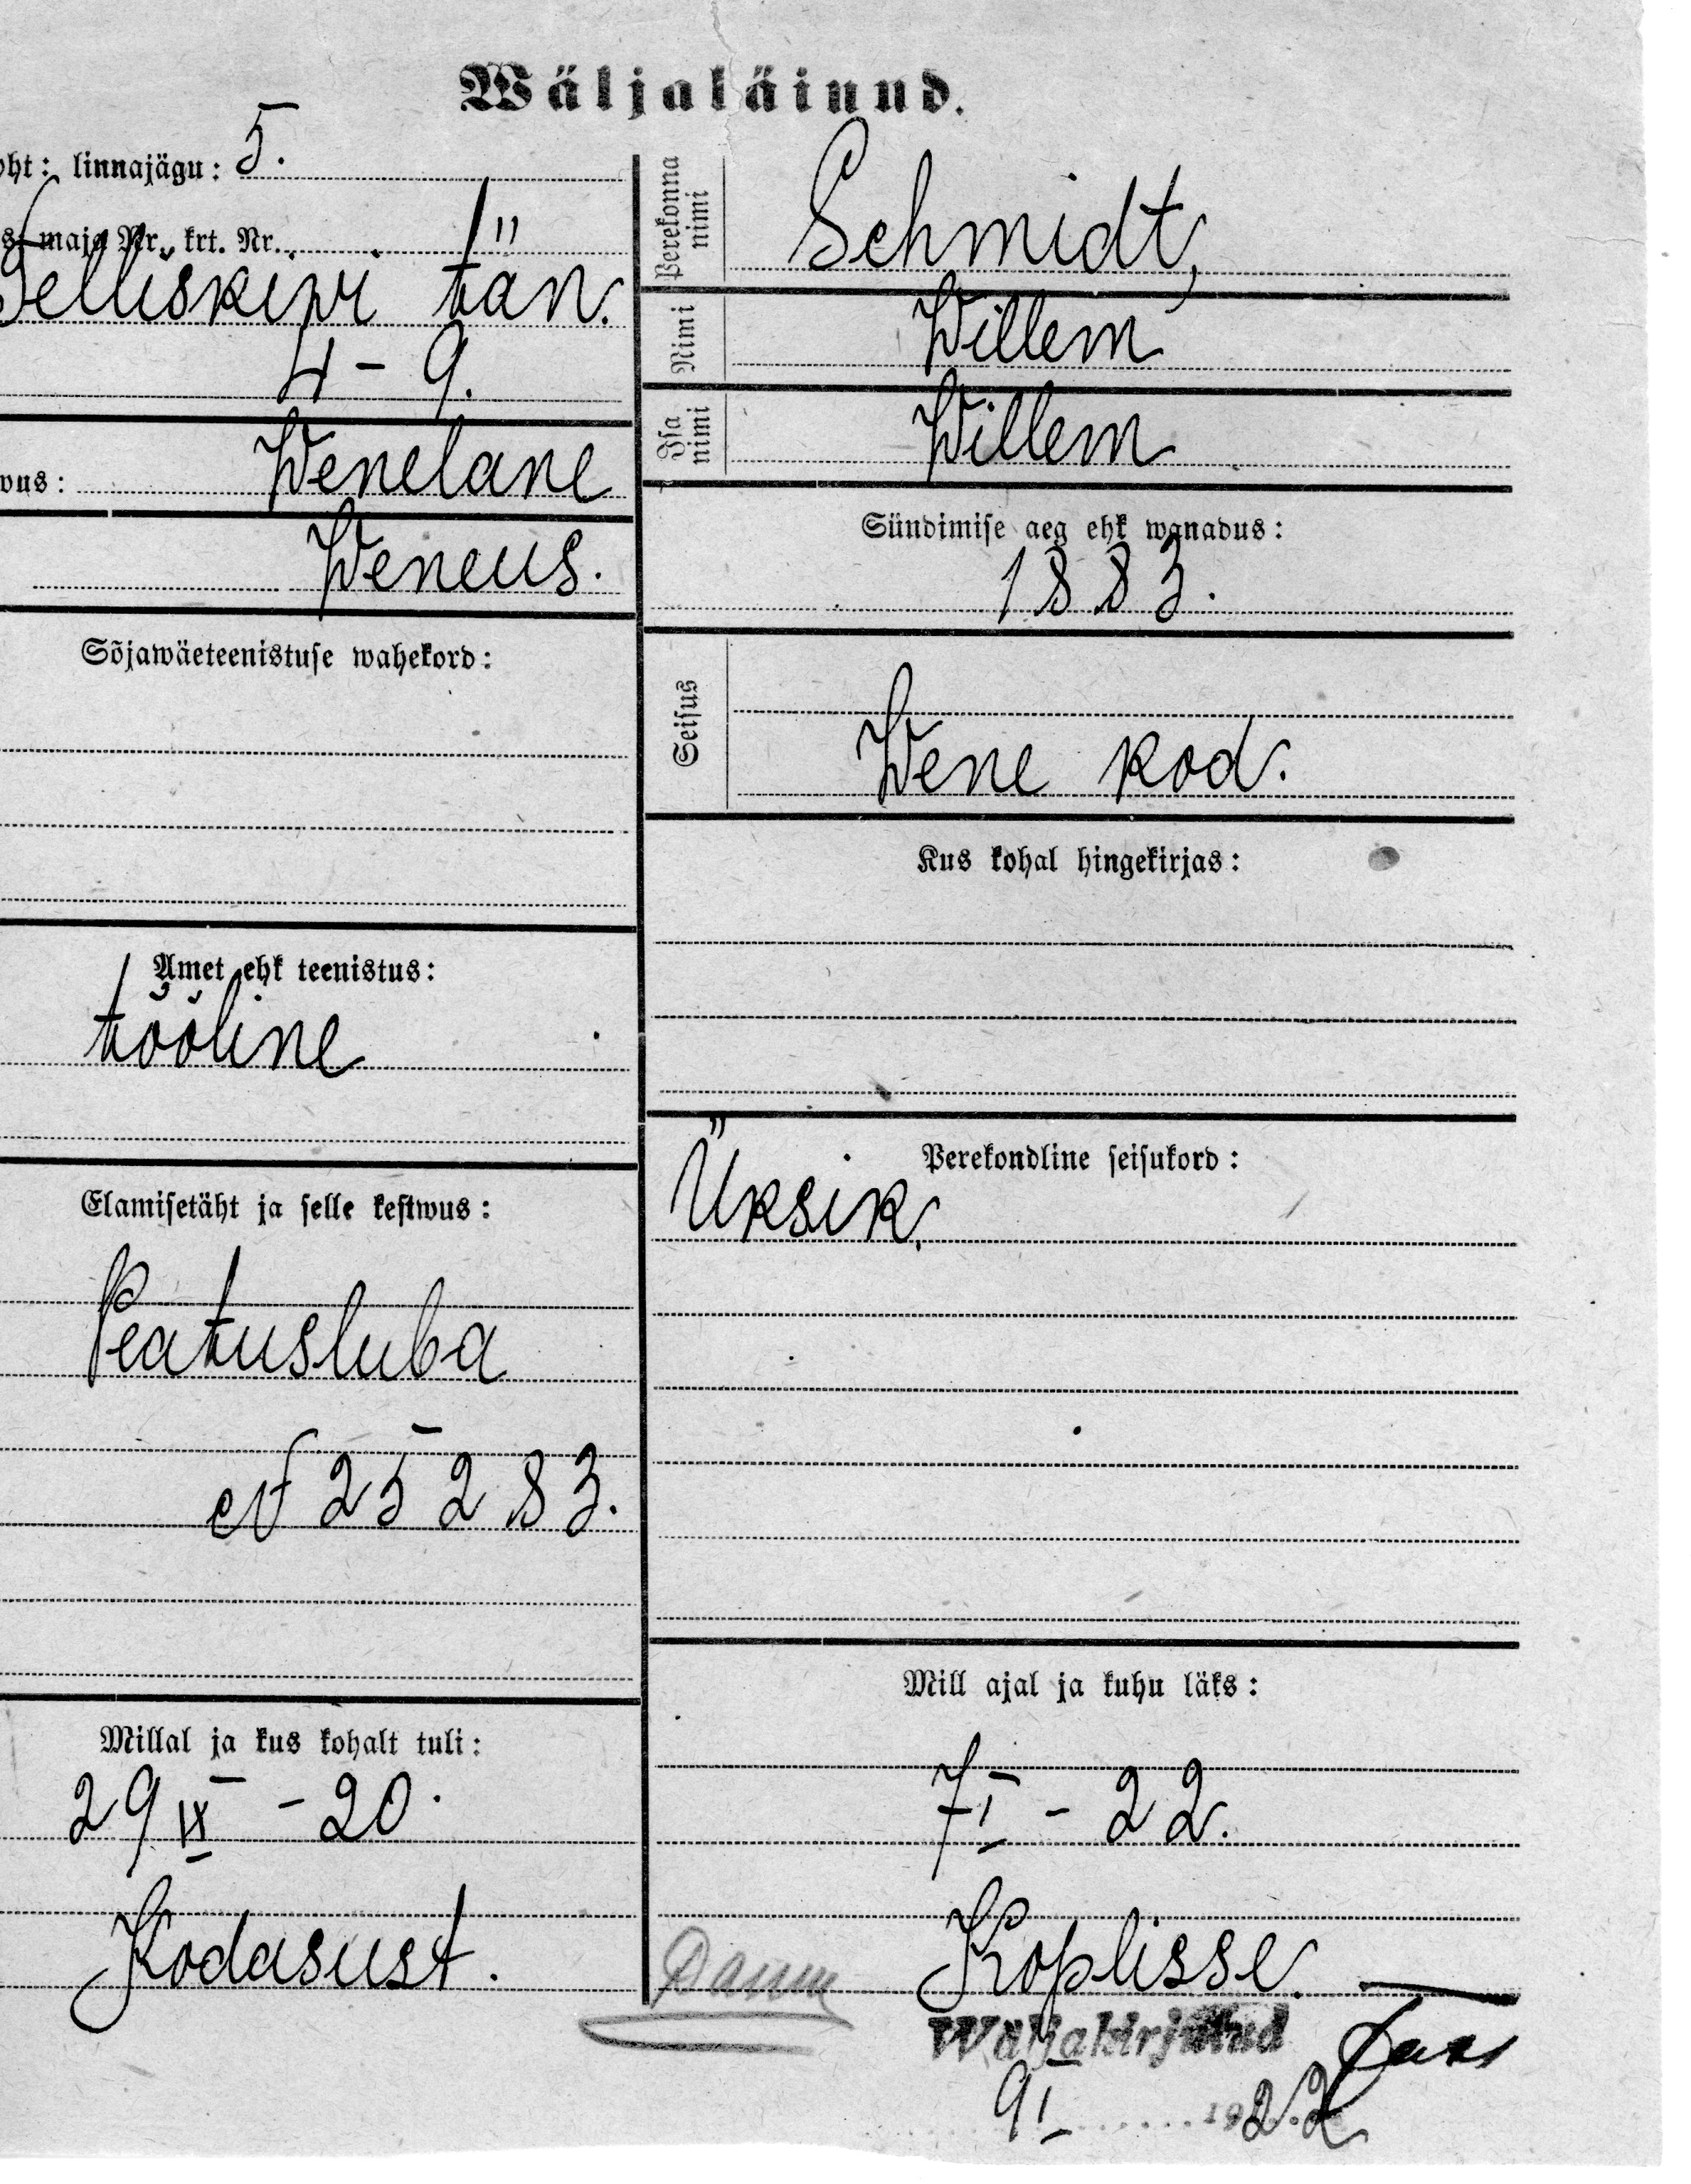 Wäljaläinud.
oht: linnajägu: 5.
s, maja Nr., krt. Nr.
Telliskivi tän.
4 - 9.
wus: Wenelane
Weneus.
Sõjawäeteenistuse wahekord:
Amet ehk teenistus:
tööline
Elamisetäht ja selle kestwus:
Peatusluba
№ 25283.
Millal ja kus kohalt tuli:
29 IX - 20.
Kodasust.
Perekonna nimi
Schmidt,
Nimi
Willem
Isa nimi
Willem
Sündimise aeg ehk wanadus:
1883.
Seisus
Wene kod.
Kus kohal hingekirjas:
Perekondline seisukord:
Üksik.
Mill ajal ja kuhu läks:
7 I - 22.
Koplisse.
Wäljakirjutud
9 I 1922